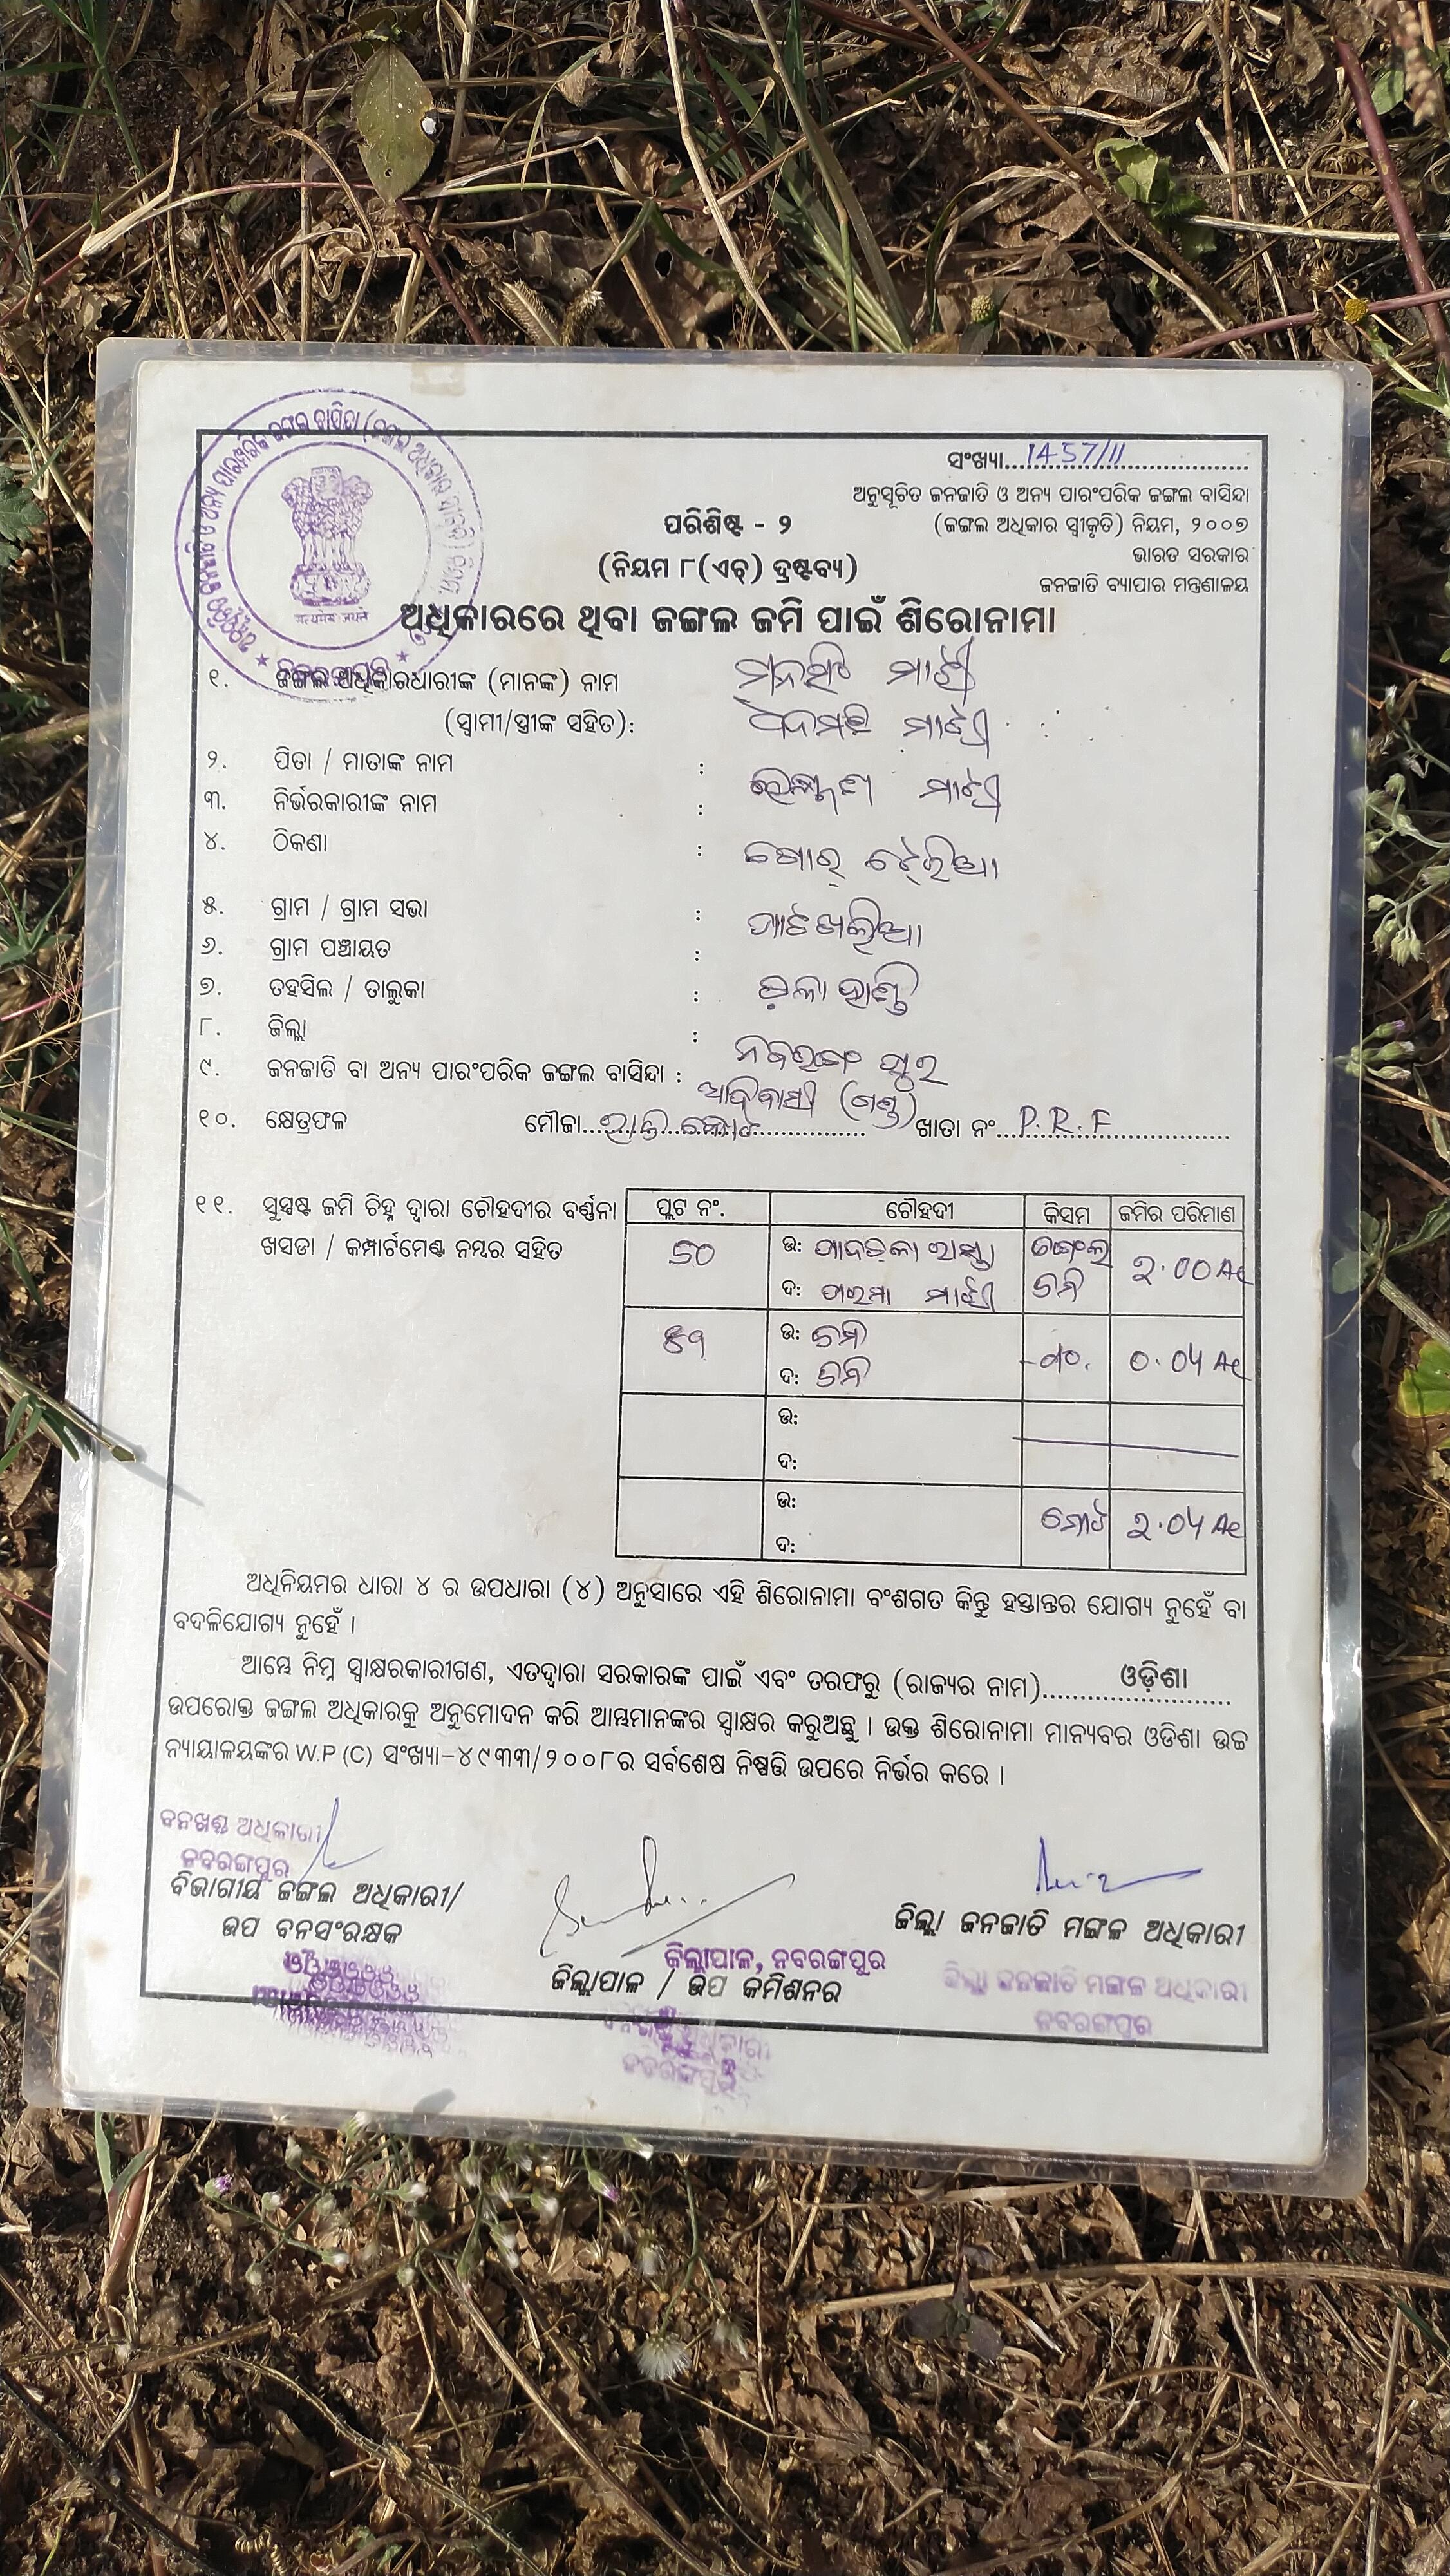 ସଂଖ୍ୟା....1457/11....
ଅନୁସୂଚିତ ଜନଜାତି ଓ ଅନ୍ୟ ପାରଂପରିକ ଜଙ୍ଗଲ ବାସିନ୍ଦା
(ଜଙ୍ଗଲ ଅଧିକାର ସ୍ୱୀକୃତି) ନିୟମ, ୨୦୦୭
ଭାରତ ସରକାର
ଜନଜାତି ବ୍ୟାପାର ମନ୍ତ୍ରଣାଳୟ
ପରିଶିଷ୍ଟ - ୨
(ନିୟମ ୮(ଏଚ୍) ଦ୍ରଷ୍ଟବ୍ୟ)
ଅଧିକାରରେ ଥିବା ଜଙ୍ଗଲ ଜମି ପାଇଁ ଶିରୋନାମା
୧. ଜଙ୍ଗଲ ଅଧିକାରଧାରୀଙ୍କ (ମାନଙ୍କ) ନାମ ମନସିଂ ମାଝୀ
(ସ୍ୱାମୀ/ସ୍ତ୍ରୀଙ୍କ ସହିତ): ମାଝୀ
୨. ପିତା / ମାତାଙ୍କ ନାମ :
୩. ନିର୍ଭରକାରୀଙ୍କ ନାମ : ମାଝୀ
୪. ଠିକଣା :
୫. ଗ୍ରାମ / ଗ୍ରାମ ସଭା :
୬. ଗ୍ରାମ ପଞ୍ଚାୟତ : ପାଟଖଲିଆ
୭. ତହସିଲ / ତାଲୁକା :
୮. ଜିଲ୍ଲା : ନବରଙ୍ଗପୁର
୯. ଜନଜାତି ବା ଅନ୍ୟ ପାରଂପରିକ ଜଙ୍ଗଲ ବାସିନ୍ଦା : ଆଦିବାସୀ (ଗଣ୍ଡ)
୧୦. କ୍ଷେତ୍ରଫଳ ମୌଜା.... ଖାତା ନଂ...P.R.F....
୧୧. ସୁସ୍ପଷ୍ଟ ଜମି ଚିହ୍ନ ଦ୍ୱାରା ଚୌହଦୀର ବର୍ଣ୍ଣନା
ଖସଡା / କମ୍ପାର୍ଟମେଣ୍ଟ ନମ୍ବର ସହିତ
ପ୍ଲଟ ନଂ. ଚୌହଦୀ କିସମ ଜମିର ପରିମାଣ
୫୦ ଉ: ରାସ୍ତା ଜଙ୍ଗଲ ୨.00 Ac
ଦ: ମାଝୀ ଜମି
ଉ: ଜମି 0.04 Ac
ଦ: ଜମି
ଉ:
ଦ:
ଉ: ମୋଟ ୨.04 Ac
ଦ:
ଅଧିନିୟମର ଧାରା ୪ ର ଉପଧାରା (୪) ଅନୁସାରେ ଏହି ଶିରୋନାମା ବଂଶଗତ କିନ୍ତୁ ହସ୍ତାନ୍ତର ଯୋଗ୍ୟ ନୁହେଁ ବା
ବଦଳିଯୋଗ୍ୟ ନୁହେଁ ।
ଆମ୍ଭେ ନିମ୍ନ ସ୍ୱାକ୍ଷରକାରୀଗଣ, ଏତଦ୍ୱାରା ସରକାରଙ୍କ ପାଇଁ ଏବଂ ତରଫରୁ (ରାଜ୍ୟର ନାମ)....ଓଡ଼ିଶା....
ଉପରୋକ୍ତ ଜଙ୍ଗଲ ଅଧିକାରକୁ ଅନୁମୋଦନ କରି ଆମ୍ଭମାନଙ୍କର ସ୍ୱାକ୍ଷର କରୁଅଛୁ । ଉକ୍ତ ଶିରୋନାମା ମାନ୍ୟବର ଓଡିଶା ଉଚ୍ଚ
ନ୍ୟାୟାଳୟଙ୍କର W.P (C) ସଂଖ୍ୟା-୪୯୩୩/୨୦୦୮ର ସର୍ବଶେଷ ନିଷ୍ପତ୍ତି ଉପରେ ନିର୍ଭର କରେ ।
ବନଖଣ୍ଡ ଅଧିକାରୀ
ନବରଙ୍ଗପୁର
ବିଭାଗୀୟ ଜଙ୍ଗଲ ଅଧିକାରୀ/
ଉପ ବନସଂରକ୍ଷକ
ଜିଲ୍ଲାପାଳ, ନବରଙ୍ଗପୁର
ଜିଲ୍ଲାପାଳ / ଉପ କମିଶନର
ଜିଲ୍ଲା ଜନଜାତି ମଙ୍ଗଳ ଅଧିକାରୀ
ଜିଲ୍ଲା ଜନଜାତି ମଙ୍ଗଳ ଅଧିକାରୀ
ନବରଙ୍ଗପୁର